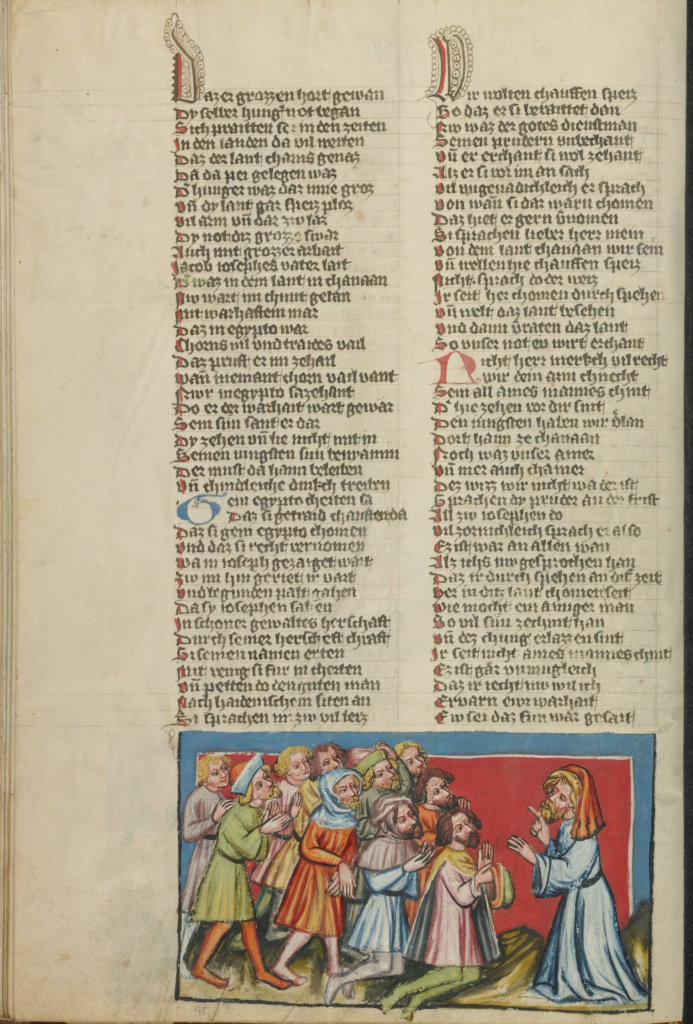 Daz er grozzen hort gewan
Dy selber hung' not began
Sich praitten ser in den zeiten
In den landen da vil weiten
Daz der lant chains genaz
Da da pei gelegen waz
D' hunger waz dar inne groz
Vn̄ dy lant gar speiz ploz
Vil arm vn̄ dar zw laz
Dy not diz grozze swar
Auch mit grozzer arbait
Jacob iosephes vater lait
D' waz in dem lant in chanaan
Nw wart im chunt getan
Mit warhaftem mar
Daz in egypto war
Chorns vil vnd traides vail
Daz pruft er im ze hail
Wan niemant chorn vail vant
Nwr in egypto sa zehant
Do er der warhait wart gewar
Sein sun sant er dar
Dy zehen vn̄ lie nicht mit in
Seinen iungsten sun benyamin
Der must da haim beleiben
Vn̄ chindleiche dinkch treiben
Gein egypto cherten sa
Daz si getraid chauften da
Da si gein egypto chomen
Vnd daz si recht vernomen
Wa in ioseph gezaiget wart
Zw im hin geriet ir vart
Vnd begunden palt gahen
Da sy iosephen sahen
In schoner gewaltes herschaft
Durch seiner herscheft chraft
Si seinen namen erten
Mit venig si fur in cherten
Vn̄ petten do den guten man
Nach haidenischem siten an
Si sprachen in zw vil leiz
Wir wolten chauffen speiz
So daz er si berattet dan
Nw waz der gotes dienstman
Seinen prudern vnbechant
Vn̄ er erchant si wol zehant
Alz er si vor im an sach
Vil vngenadichleich er sprach
Von wan̄ si dar warn chomen
Daz hiet er gern v'nomen
Si sprachen lieber herr mein
Von dem lant chanaan wir sein
Vn̄ wellen hie chauffen speiz
Nicht sprach do der weiz
Ir seit her chomen durch spehen
Vn̄ welt daz lant besehen
Vnd dann v'raten daz lant
So vnser not ew wirt erchant
Nicht herr merkch vil recht
Wir dein arm chnecht
Sein all aines mannes chint
D' hie zehen vor dir sint
Den iungsten haben wir v'lan
Dort haim ze chanaan
Noch waz vnser ainer
Vn̄ mer auch chainer
Dez wizz wir nicht wa der ist
Sprachen dy pruder an der frist
All zw iosephen do
Vil zornichleich sprach er also
Ez ist war an allen wan
Alz ichs nw gesprochen han
Daz ir durch spehen an diser zeit
Her in ditz lant chomen seit
Wie mocht ein ainiger man
So vil sun zechint han
Vn̄ dez chung erlazzen sint
Ir seit nicht aines mannes chint
Ez ist gar vnmugleich
Daz ir iecht nw wil ich
Ervarn ewr warhait
Ew sei daz fur war gesait